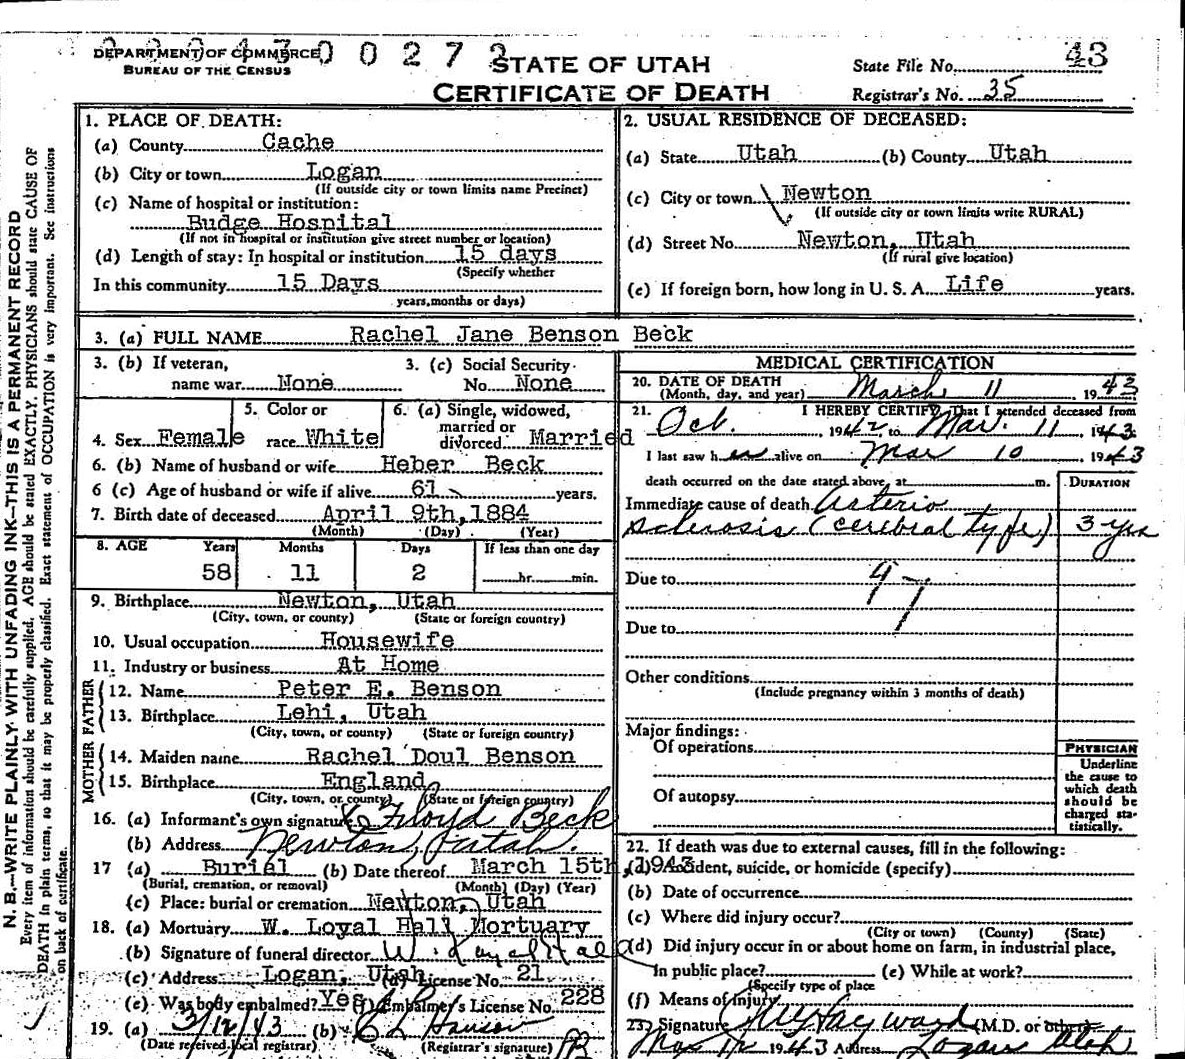 DEPARTMENT OF COMMERCE
BUREAU OF THE CENSUS
0 0 2 7
STATE OF UTAH
CERTIFICATE OF DEATH
State File No. 43
Registrar's No. 35
N. B.—WRITE PLAINLY WITH UNFADING INK—THIS IS A PERMANENT RECORD
Every item of information should be carefully supplied. AGE should be stated EXACTLY. PHYSICIANS should state CAUSE OF
DEATH in plain terms, so that it may be properly classified. Exact statement of OCCUPATION is very important. See instructions
on back of certificate.
1. PLACE OF DEATH:
(a) County Cache
(b) City or town Logan
(If outside city or town limits name Precinct)
(c) Name of hospital or institution:
Budge Hospital
(If not in hospital or institution give street number or location)
(d) Length of stay: In hospital or institution 15 days
(Specify whether
In this community 15 Days
years, months or days)
2. USUAL RESIDENCE OF DECEASED:
(a) State Utah (b) County Utah
(c) City or town Newton
(If outside city or town limits write RURAL)
(d) Street No. Newton, Utah
(If rural give location)
(e) If foreign born, how long in U. S. A. Life years.
3. (a) FULL NAME Rachel Jane Benson Beck
3. (b) If veteran,
name war None
3. (c) Social Security
No. None
4. Sex Female
5. Color or
race White
6. (a) Single, widowed,
married or
divorced Married
6. (b) Name of husband or wife Heber Beck
6 (c) Age of husband or wife if alive 61 years.
7. Birth date of deceased April 9th, 1884
(Month) (Day) (Year)
8. AGE Years Months Days If less than one day
58 11 2 hr. min.
9. Birthplace Newton, Utah
(City, town, or county) (State or foreign country)
10. Usual occupation Housewife
11. Industry or business At Home
FATHER
12. Name Peter E. Benson
13. Birthplace Lehi, Utah
(City, town, or county) (State or foreign country)
MOTHER
14. Maiden name Rachel Doul Benson
15. Birthplace England
(City, town, or county) (State or foreign country)
16. (a) Informant's own signature Floyd Beck
(b) Address Newton, Utah.
17 (a) Buriel (b) Date thereof March 15th, 1943
(Burial, cremation, or removal) (Month) (Day) (Year)
(c) Place: burial or cremation Newton, Utah
18. (a) Mortuary W. Loyal Hall Mortuary
(b) Signature of funeral director W. Loyal Hall
(c) Address Logan, Utah (d) License No. 21
(e) Was body embalmed? Yes (f) Embalmer's License No. 228
19. (a) 3/12/43 (b)
(Date received local registrar) (Registrar's signature)
MEDICAL CERTIFICATION
20. DATE OF DEATH
(Month, day, and year) March 11 1943
21. I HEREBY CERTIFY, That I attended deceased from
Oct. 1942, to Mar. 11, 1943.
I last saw her alive on Mar 10 1943
death occurred on the date stated above, at m.
DURATION
Immediate cause of death Arterio
sclerosis (cerebral type) 3 yrs
Due to 97
Due to
Other conditions
(Include pregnancy within 3 months of death)
Major findings:
Of operations
Of autopsy
PHYSICIAN
Underline
the cause to
which death
should be
charged sta-
tistically.
22. If death was due to external causes, fill in the following:
(a) Accident, suicide, or homicide (specify)
(b) Date of occurrence
(c) Where did injury occur?
(City or town) (County) (State)
(d) Did injury occur in or about home on farm, in industrial place,
in public place? (e) While at work?
(Specify type of place
(f) Means of injury
23. Signature Hayward (M.D. or other)
1943 Address Logan Utah